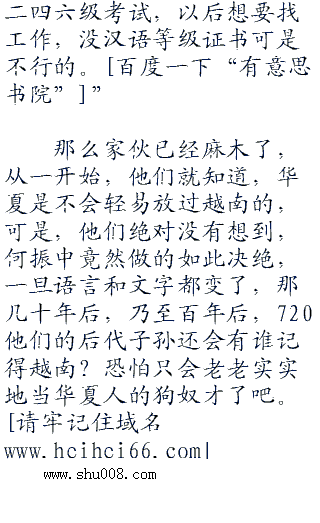 二四六级考试，以后想要找
工作，没汉语等级证书可是
不行的。[百度一下“有意思
书院”]”
那么家伙已经麻木了，
从一开始，他们就知道，华
夏是不会轻易放过越南的，
可是，他们绝对没有想到，
何振中竟然做的如此决绝，
一旦语言和文字都变了，那
几十年后，乃至百年后，720
他们的后代子孙还会有谁记
得越南？恐怕只会老老实实
地当华夏人的狗奴才了吧。
[请牢记住域名
www.hcihci66.com|
www.shu008.com